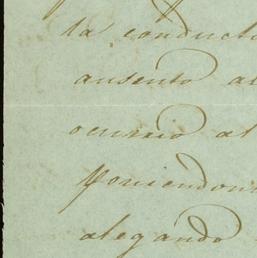 la conduct
ausento a
ocurrio al
poniendom
alegando